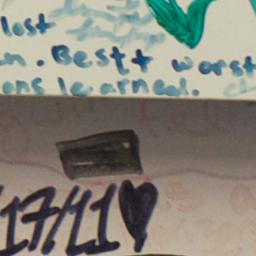 lost
n. Best + worst
ons learned.
17/11♥